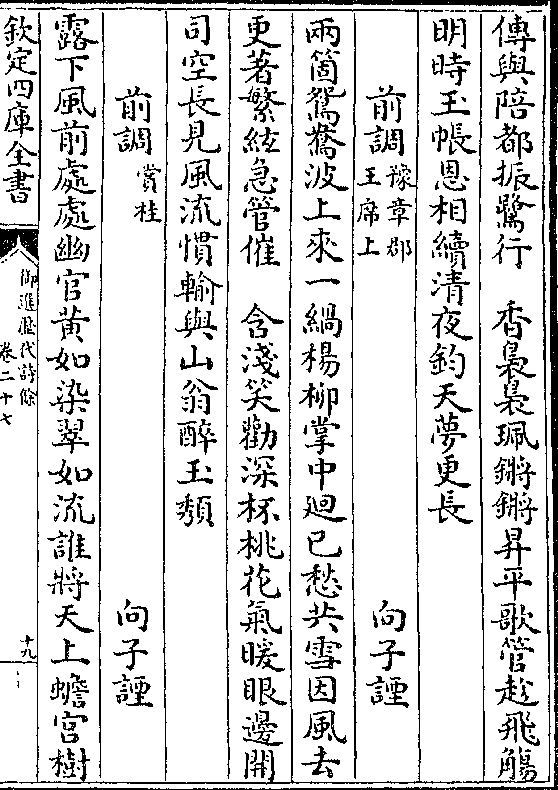 傳與陪都振鷺行　香裊裊珮鏘鏘昇平歌管趁飛觴
明時玉帳恩相續清夜鈞天夢更長
前調　豫章郡王席上　向子諲
兩箇鴛鴦波上來一緺楊柳掌中廻已愁共雪因風去
更著繁絃急管催　含淺笑勸深杯桃花氣暖眼邊開
司空長見風流慣輸與山翁醉玉頹
前調　賞桂　向子諲
露下風前處處幽官黃如染翠如流誰將天上蟾宮樹
欽定四庫全書
御選歷代詩餘
卷二十七
十九